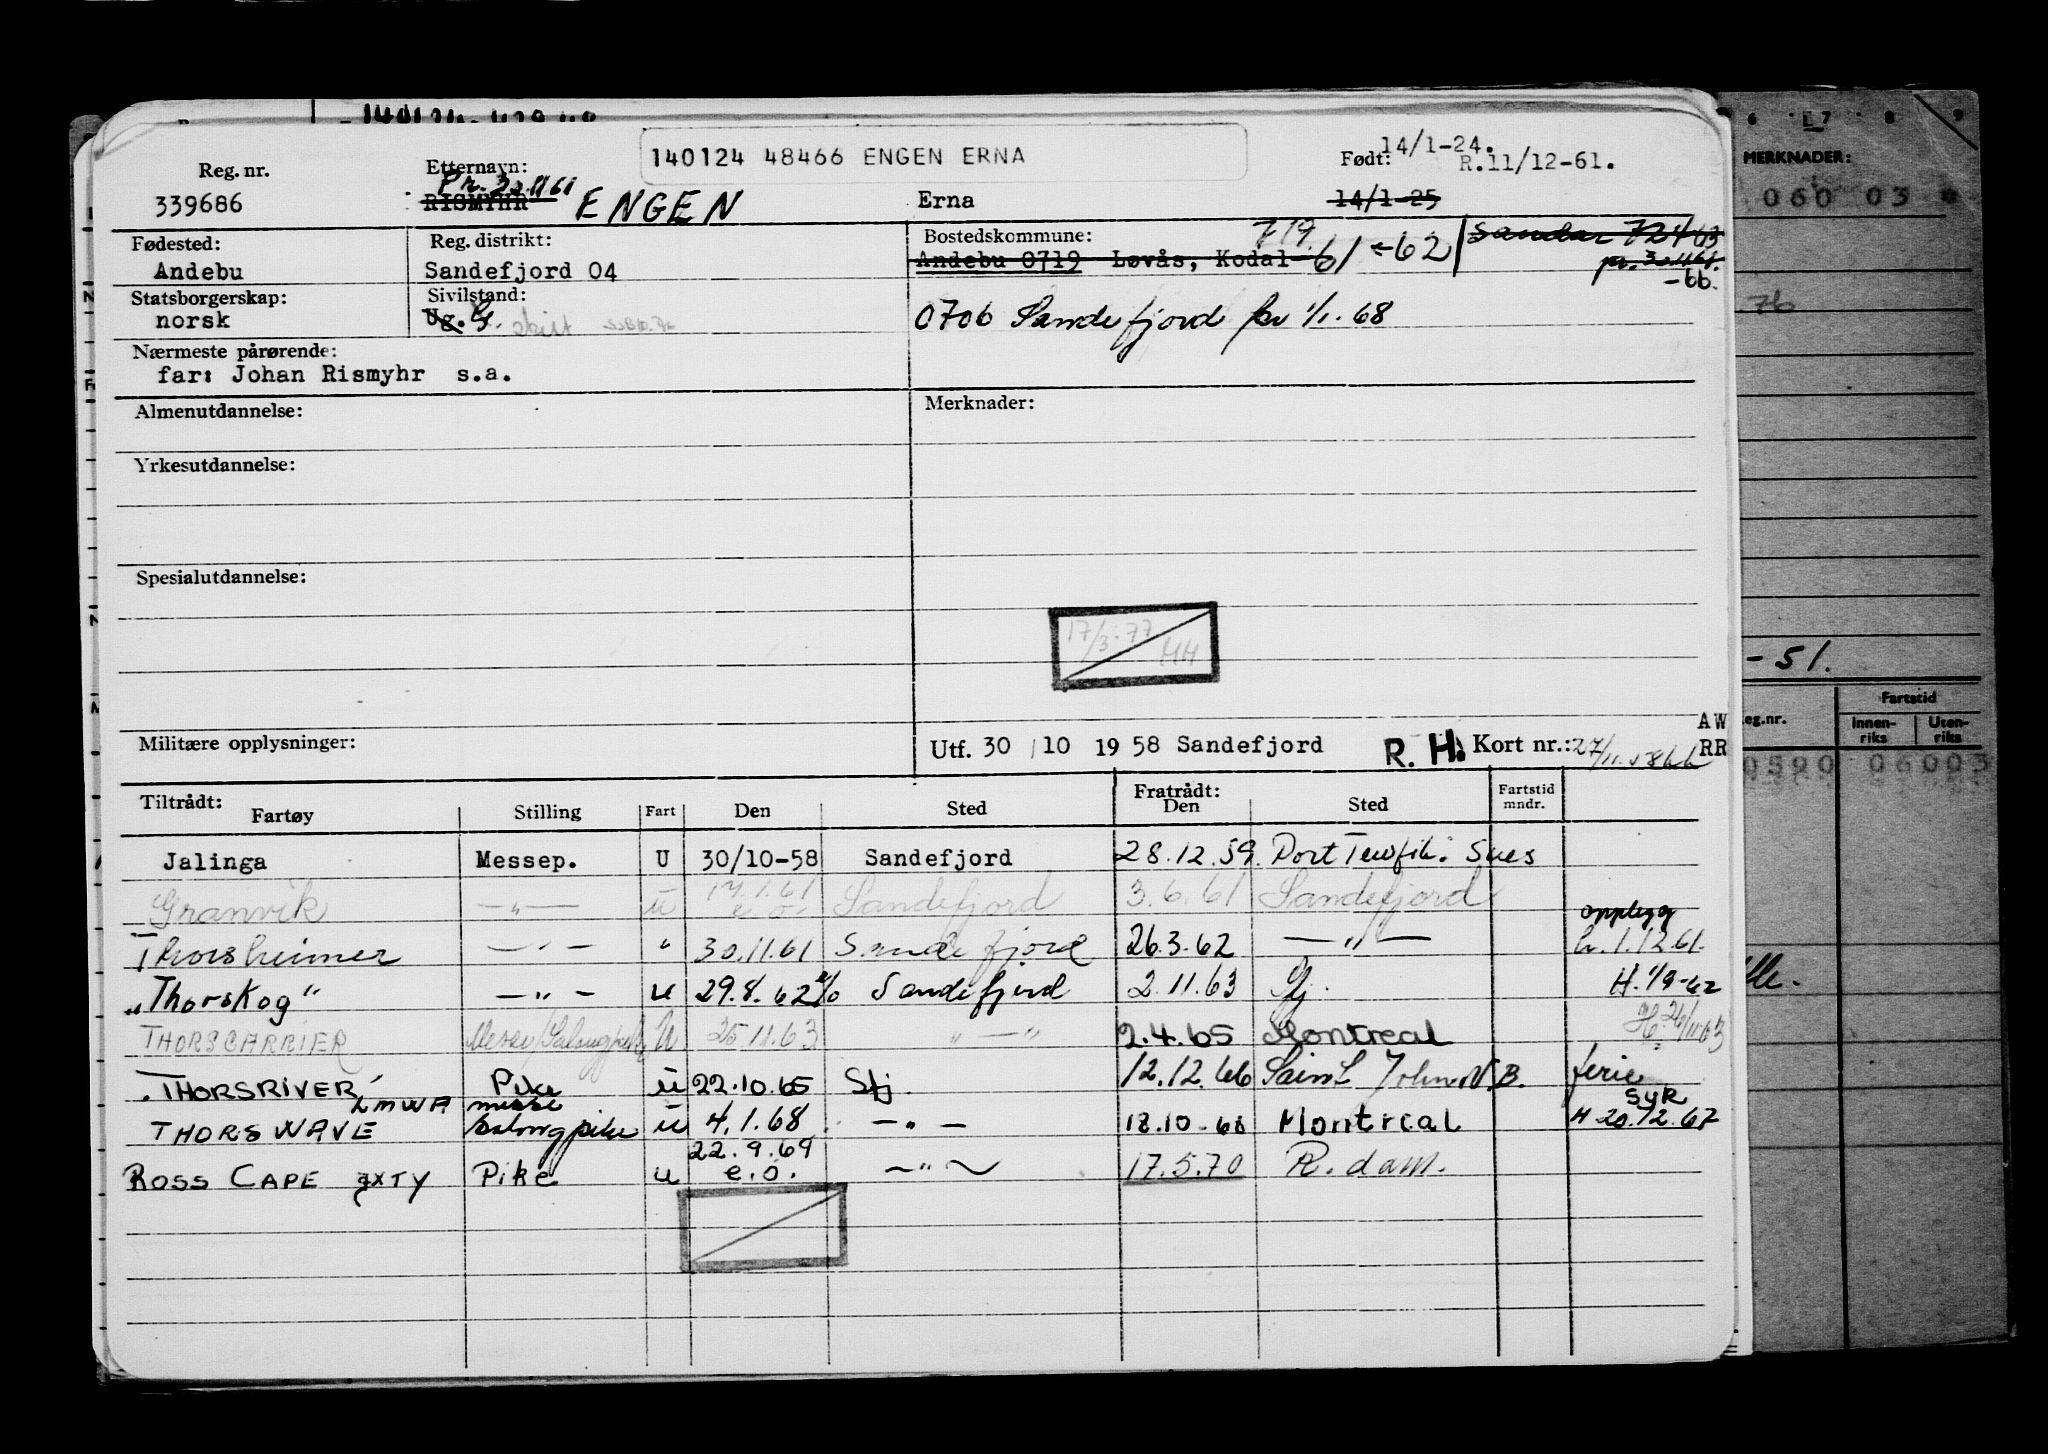 140124 48466 ENGEN ERNA
Reg. nr. Etternavn: Født: 14/1-24. R.11/12-61.
Pr. 30.11 61
339686 RISMYHR ENGEN Erna 14/1-25
Fødested: Reg. distrikt: Bostedskommune: 719
Andebu Sandefjord 04 Andebu 0719 Løvås, Kodal 61-62 Sandar 724 63
pr. 30.11.61. -66.
Statsborgerskap: Sivilstand:
norsk Ug. G. skilt 0706 Sandefjord pr 1/1. 68
Nærmeste pårørende:
far: Johan Rismyhr s.a.
Almenutdannelse: Merknader:
Yrkesutdannelse:
Spesialutdannelse:
17/3-77 HH
Militære opplysninger: Utf. 30/10 1958 Sandefjord R. H. Kort nr.: 27/11
AW
RR
Tiltrådt: Fratrådt:
Fartøy Stilling Fart Den Sted Den Sted Fartstid mndr.
Jalinga Messep. U 30/10-58 Sandefjord 28.12.59. Port Tewfik. Sues
Granvik —"— U 17.1.61 e.o. Sandefjord 3.6.61 Sandefjord
Thorsheimer —"— " 30.11.61 Sandefjord 26.3.62 —"— opplegg
1.12.61.
"Thorskog" —"— U 29.8.62 Sandefjord 2.11.63 Sfj. H. 1/9-62
THORSCARRIER Messe/Salongpike U 25.11.63 "—" 2.4.65 Montreal H. 26/11-63
THORSRIVER Pike U 22.10.65 Sfj. 12.12.66 Saint John N.B. ferie
syk
LMWA messe
THORSWAVE salongpike U 4.1.68 —"— 18.10.68 Montreal H 20.12.67
ROSS CAPE JXTY Pike U 22.9.69 e.o. —"— 17.5.70 R.dam.
6 7 8 9
MERKNADER:
060 03
76
-51.
eg.nr. Fartstid
Innenriks Utenriks
0500 06003